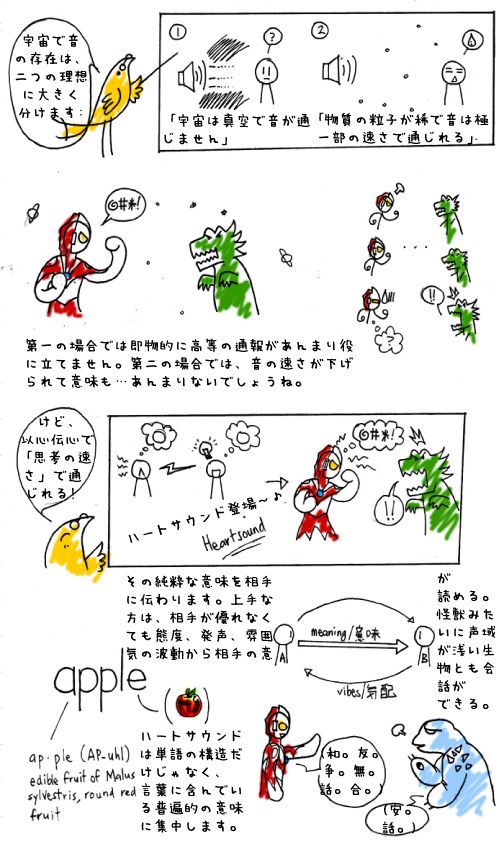 宇宙で音
の存在は、
二つの理想
に大きく
分けます:
① ②
?
!!
「宇宙は真空で音が通
じません」
「物質の粒子が稀で音は極
一部の速さで通じれる」
@#*!
....
!!
?
第一の場合では即物的に高等の通報があんまり役
に立てません。第二の場合では、音の速さが下げ
られて意味も…あんまりないでしょうね。
けど、
以心伝心で
「思考の速
さ」で通
じれる!
ハートサウンド登場~♪
Heartsound
@#*!
!!
その純粋な意味を相手
に伝わります。上手な
方は、相手が優れなく
ても態度、発声、雰囲
気の波動から相手の意
が
読める。
怪獣みた
いに声域
が浅い生
物とも会
話が
できる。
meaning/意味
A B
vibes/気配
apple
ap·ple (AP-uhl)
edible fruit of Malus
sylvestris, round red
fruit
ハートサウンド
は単語の構造だ
けじゃなく、
言葉に含んでい
る普遍的の意味
に集中します。
(和。友。
争。無。
話。合。)
(安。
話。)